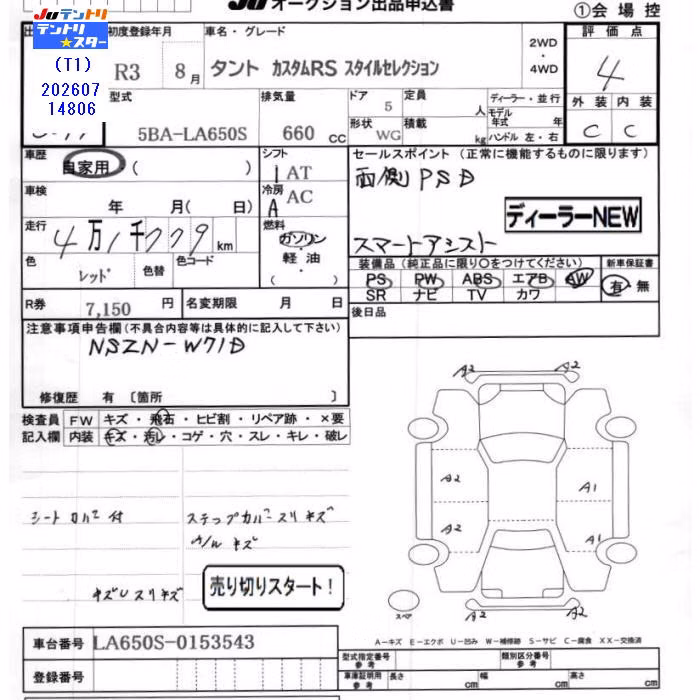 JU オークション出品申込書
①会場控
JUテントリ
テントリ★スター
(T1)
202607
14806
初度登録年月
R3 8月
車名・グレード
タント カスタムRS スタイルセレクション
2WD
・
4WD
評価点
4
外装 内装
C C
型式
5BA-LA650S
排気量
660 cc
ドア 5
形状 WG
定員 人
積載 kg
ディーラー・並行
モデル年式 年
ハンドル 左・右
車歴
自家用 ( )
シフト
1 AT
セールスポイント (正常に機能するものに限ります)
両側PSD
ディーラーNEW
スマートアシスト
車検
年 月( 日)
冷房
A AC
走行
4万1千779km
燃料
ガソリン
・
軽油
・
( )
色
レッド
色替
色コード
装備品 (純正品に限り○をつけてください)
PS PW ABS エアB AW
SR ナビ TV カワ
新車保証書
有・無
R券 7,150円
名変期限 月 日
後日品
注意事項申告欄 (不具合内容等は具体的に記入して下さい)
NSZN-W71D
修復歴 有〔箇所 〕
検査員記入欄
FW キズ・飛石・ヒビ割・リペア跡・×要
内装 キズ・汚レ・コゲ・穴・スレ・キレ・破レ
シートカバー付
ステップカバースリキズ
A/Wキズ
キズUスリキズ
売り切りスタート!
A2 A2
A2 A1
A2 A1
A2 A2
スペア
A-キズ E-エクボ U-凹み W-補修跡 S-サビ C-腐食 XX-交換済
車台番号 LA650S-0153543
登録番号
型式指定番号 参考
類別区分番号 参考
車庫証明用 参考
長さ cm 幅 cm 高さ cm